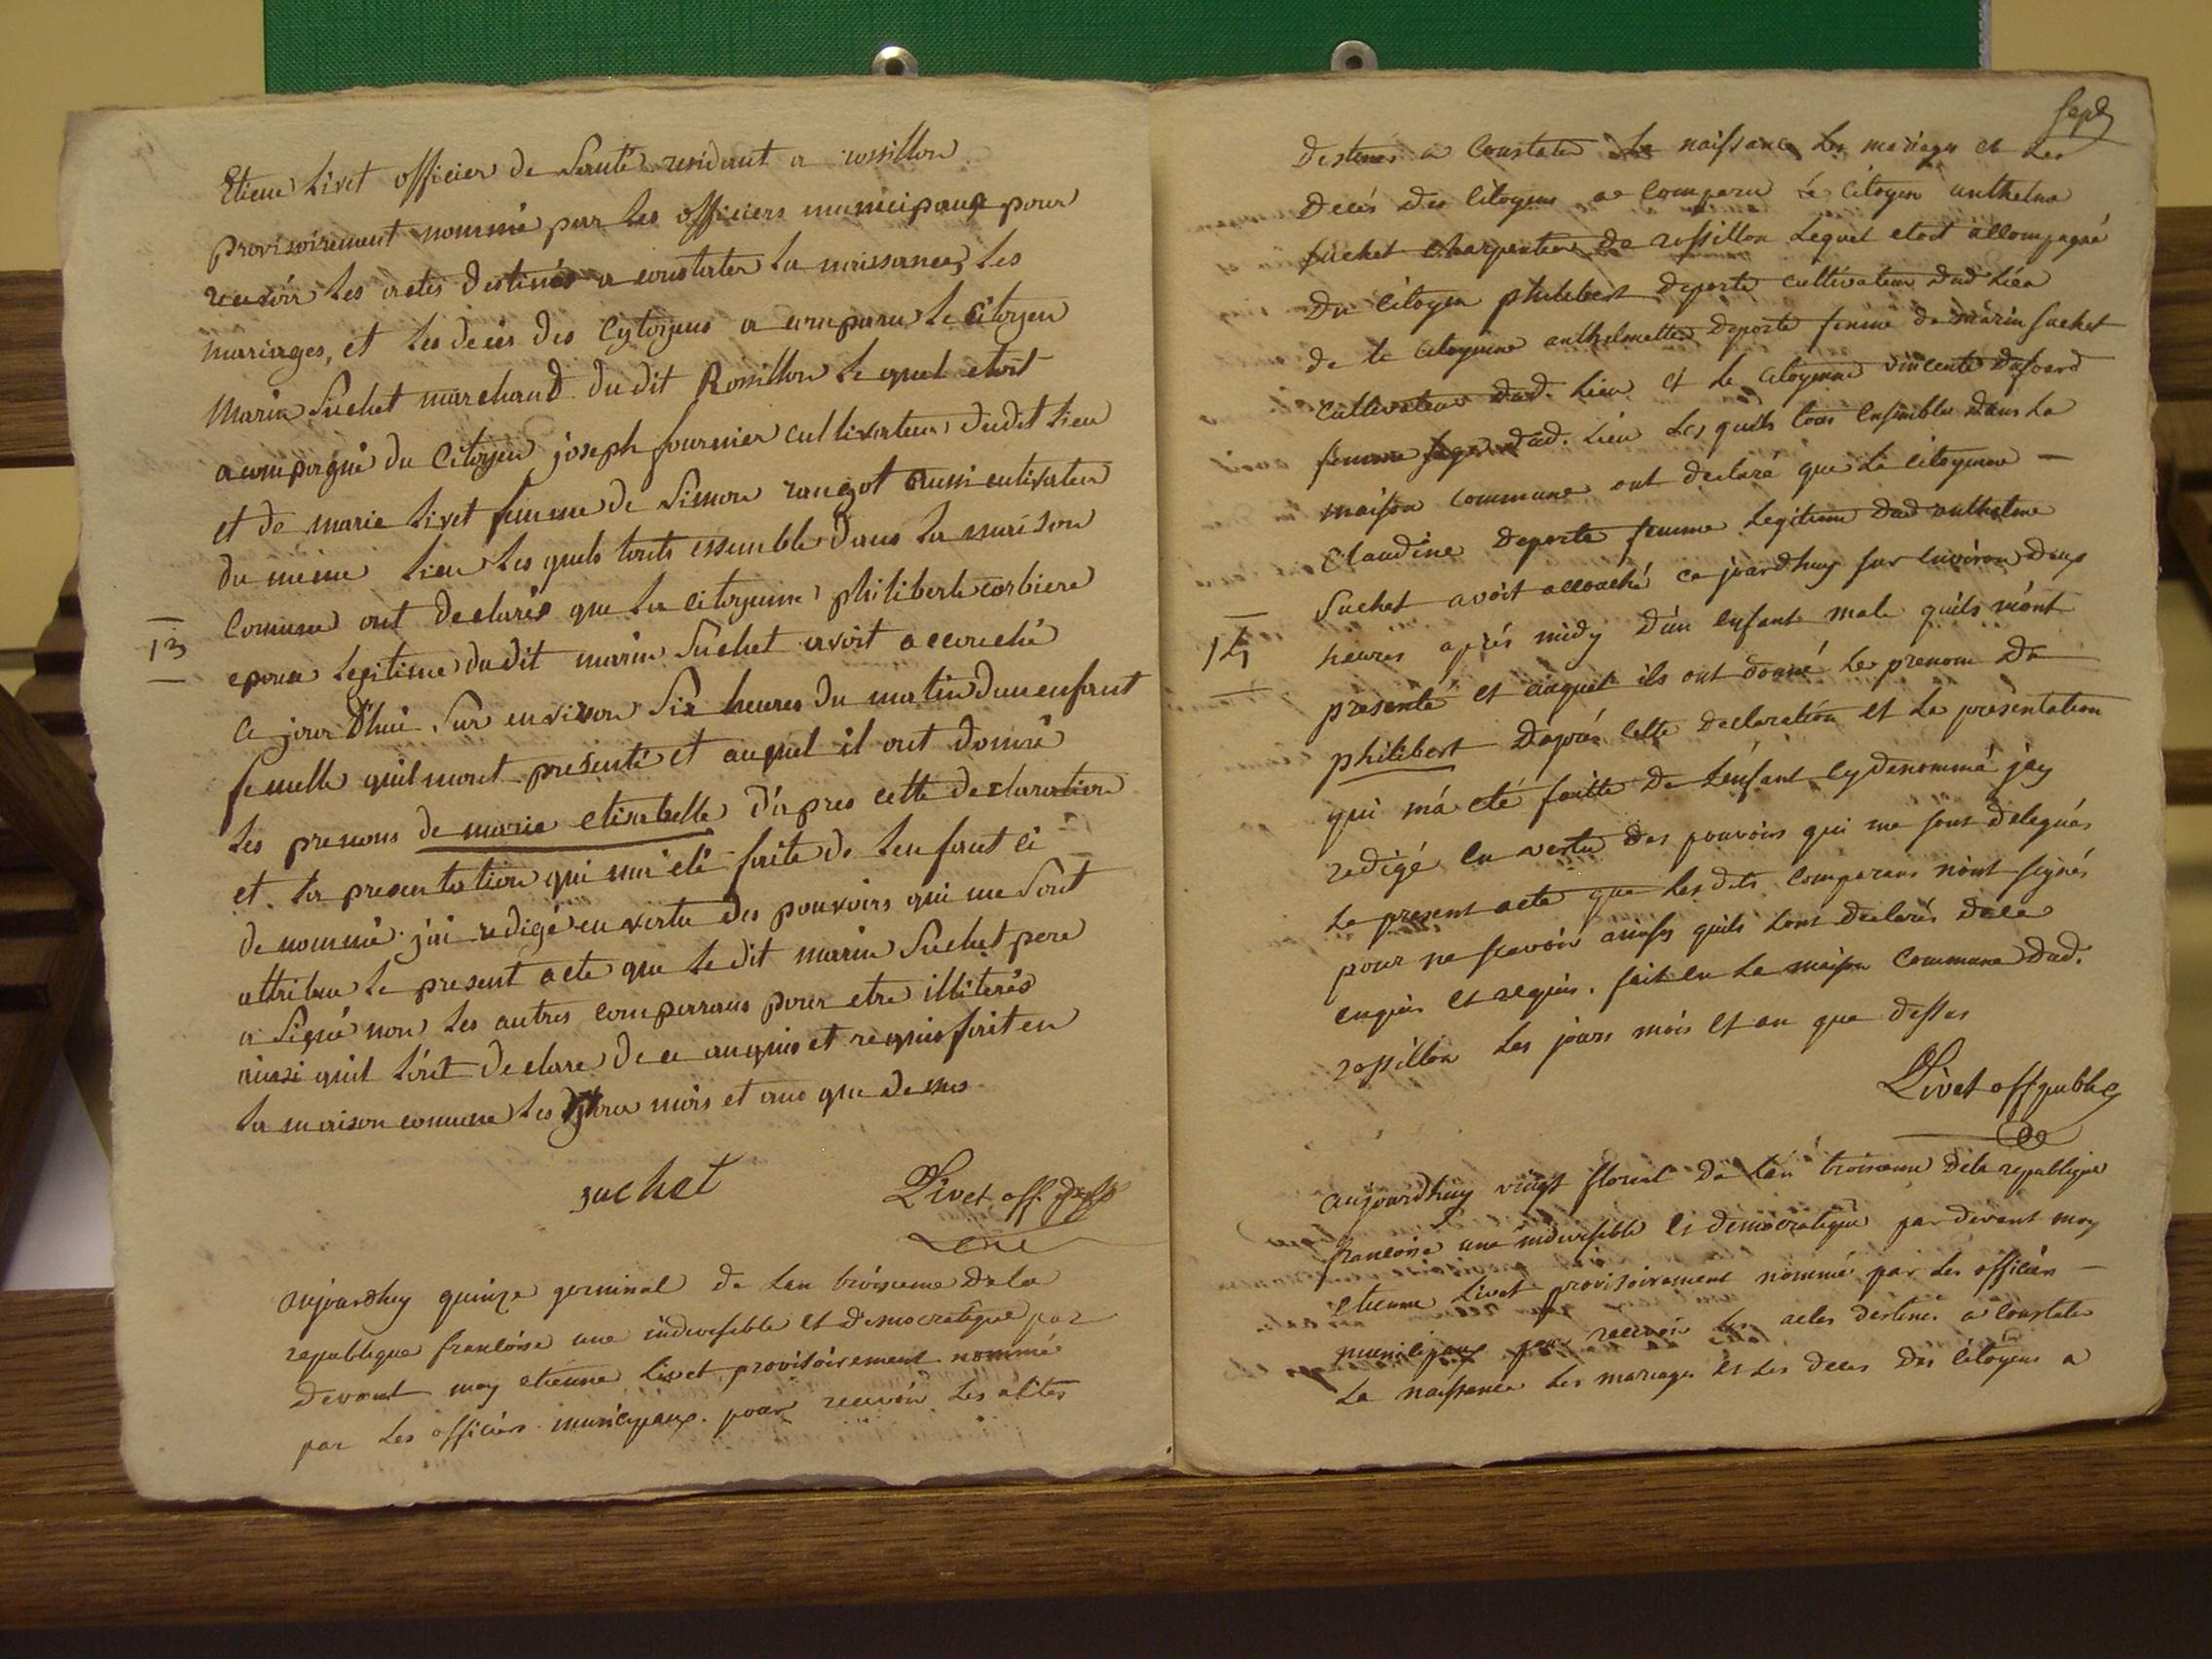 Etiene Livet officier de santé residant a rossillon
provisoirement nommé par les officiers municipaux pour
recevoir les actes destinés a constater la naissance, les
mariages, et les decés des Cytoyens a comparu le Citoyen
Marin Suchet marchand dudit Rossillon le quel etoit
acompagné du Citoyen joseph fournier cultivateur dudit lieu
et de marie livet femme de Simon rangot aussi cultivateur
du meme lieu les quels touts essemble dans la maison
Comune ont declarés que la citoyenne philiberte corbiere
13
epouse legitime dudit marin Suchet avoit accouché
ce jour d'hui sur environ six heures du matin dun enfant
femelle quil mont presenté et auquel il ont donné
les prenoms de marie elisabelle d'apres cette declaration
et la presentation qui ma eté faite de lenfant ci
denommé j'ai redigé en vertu des pouvoirs qui me sont
attribue le present acte que le dit marin Suchet pere
a signé non les autres comparrans pour etre illiterés
ainsi quil l'ont declare de ce anquis et requis fait en
la maison comune les jour mois et ans que dessus
suchet
Livet off
aujourdhuy quinze germinal de lan troisieme dela
republique francoise une indivisible et democratique par
devant moy etienne livet provisoirement nommé
par les officiers municipaux pour recevoir les actes
sept
destinés a constater la naissance les mariages et les
decés des Citoyens a comparu le Citoyen anthelme
suchet charpentier de rossillon lequel etoit accompagné
du citoyen philibert deporte cultivateur dud lieu
de la citoyenne anthelmette deporte femme de marin suchet
cultivateur dud. lieu et la citoyenne vincente
femme dud. lieu les quels tous ensemble dans la
maison commune ont declaré que la citoyenne
Claudine deporte femme legitime dud anthelme
Suchet avoit accouché ce jourdhuy sur environ deux
14
heures aprés midy d'un enfant male quils m'ont
presenté et auquel ils ont donné le prenom de
philibert daprés cette declaration et la presentation
qui m'a eté faitte de lenfant cydenommé jay
redigé en vertu des pouvoirs qui me sont delegués
le present acte que lesdits comparans n'ont signés
pour ne scavoir quils l'ont declarés dece
enquis et requis. fait en la maison commune dud.
rossillon les jours mois et an que dessus
Livet off public
aujourdhuy vingt floreal de l'an troisieme dela republique
francoise une indivisible et democratique par devant moy
etienne Livet provisoirement nommé par les officiers
municipaux pour recevoir les actes destinés a constater
la naissance les mariages et les decés des citoyens a